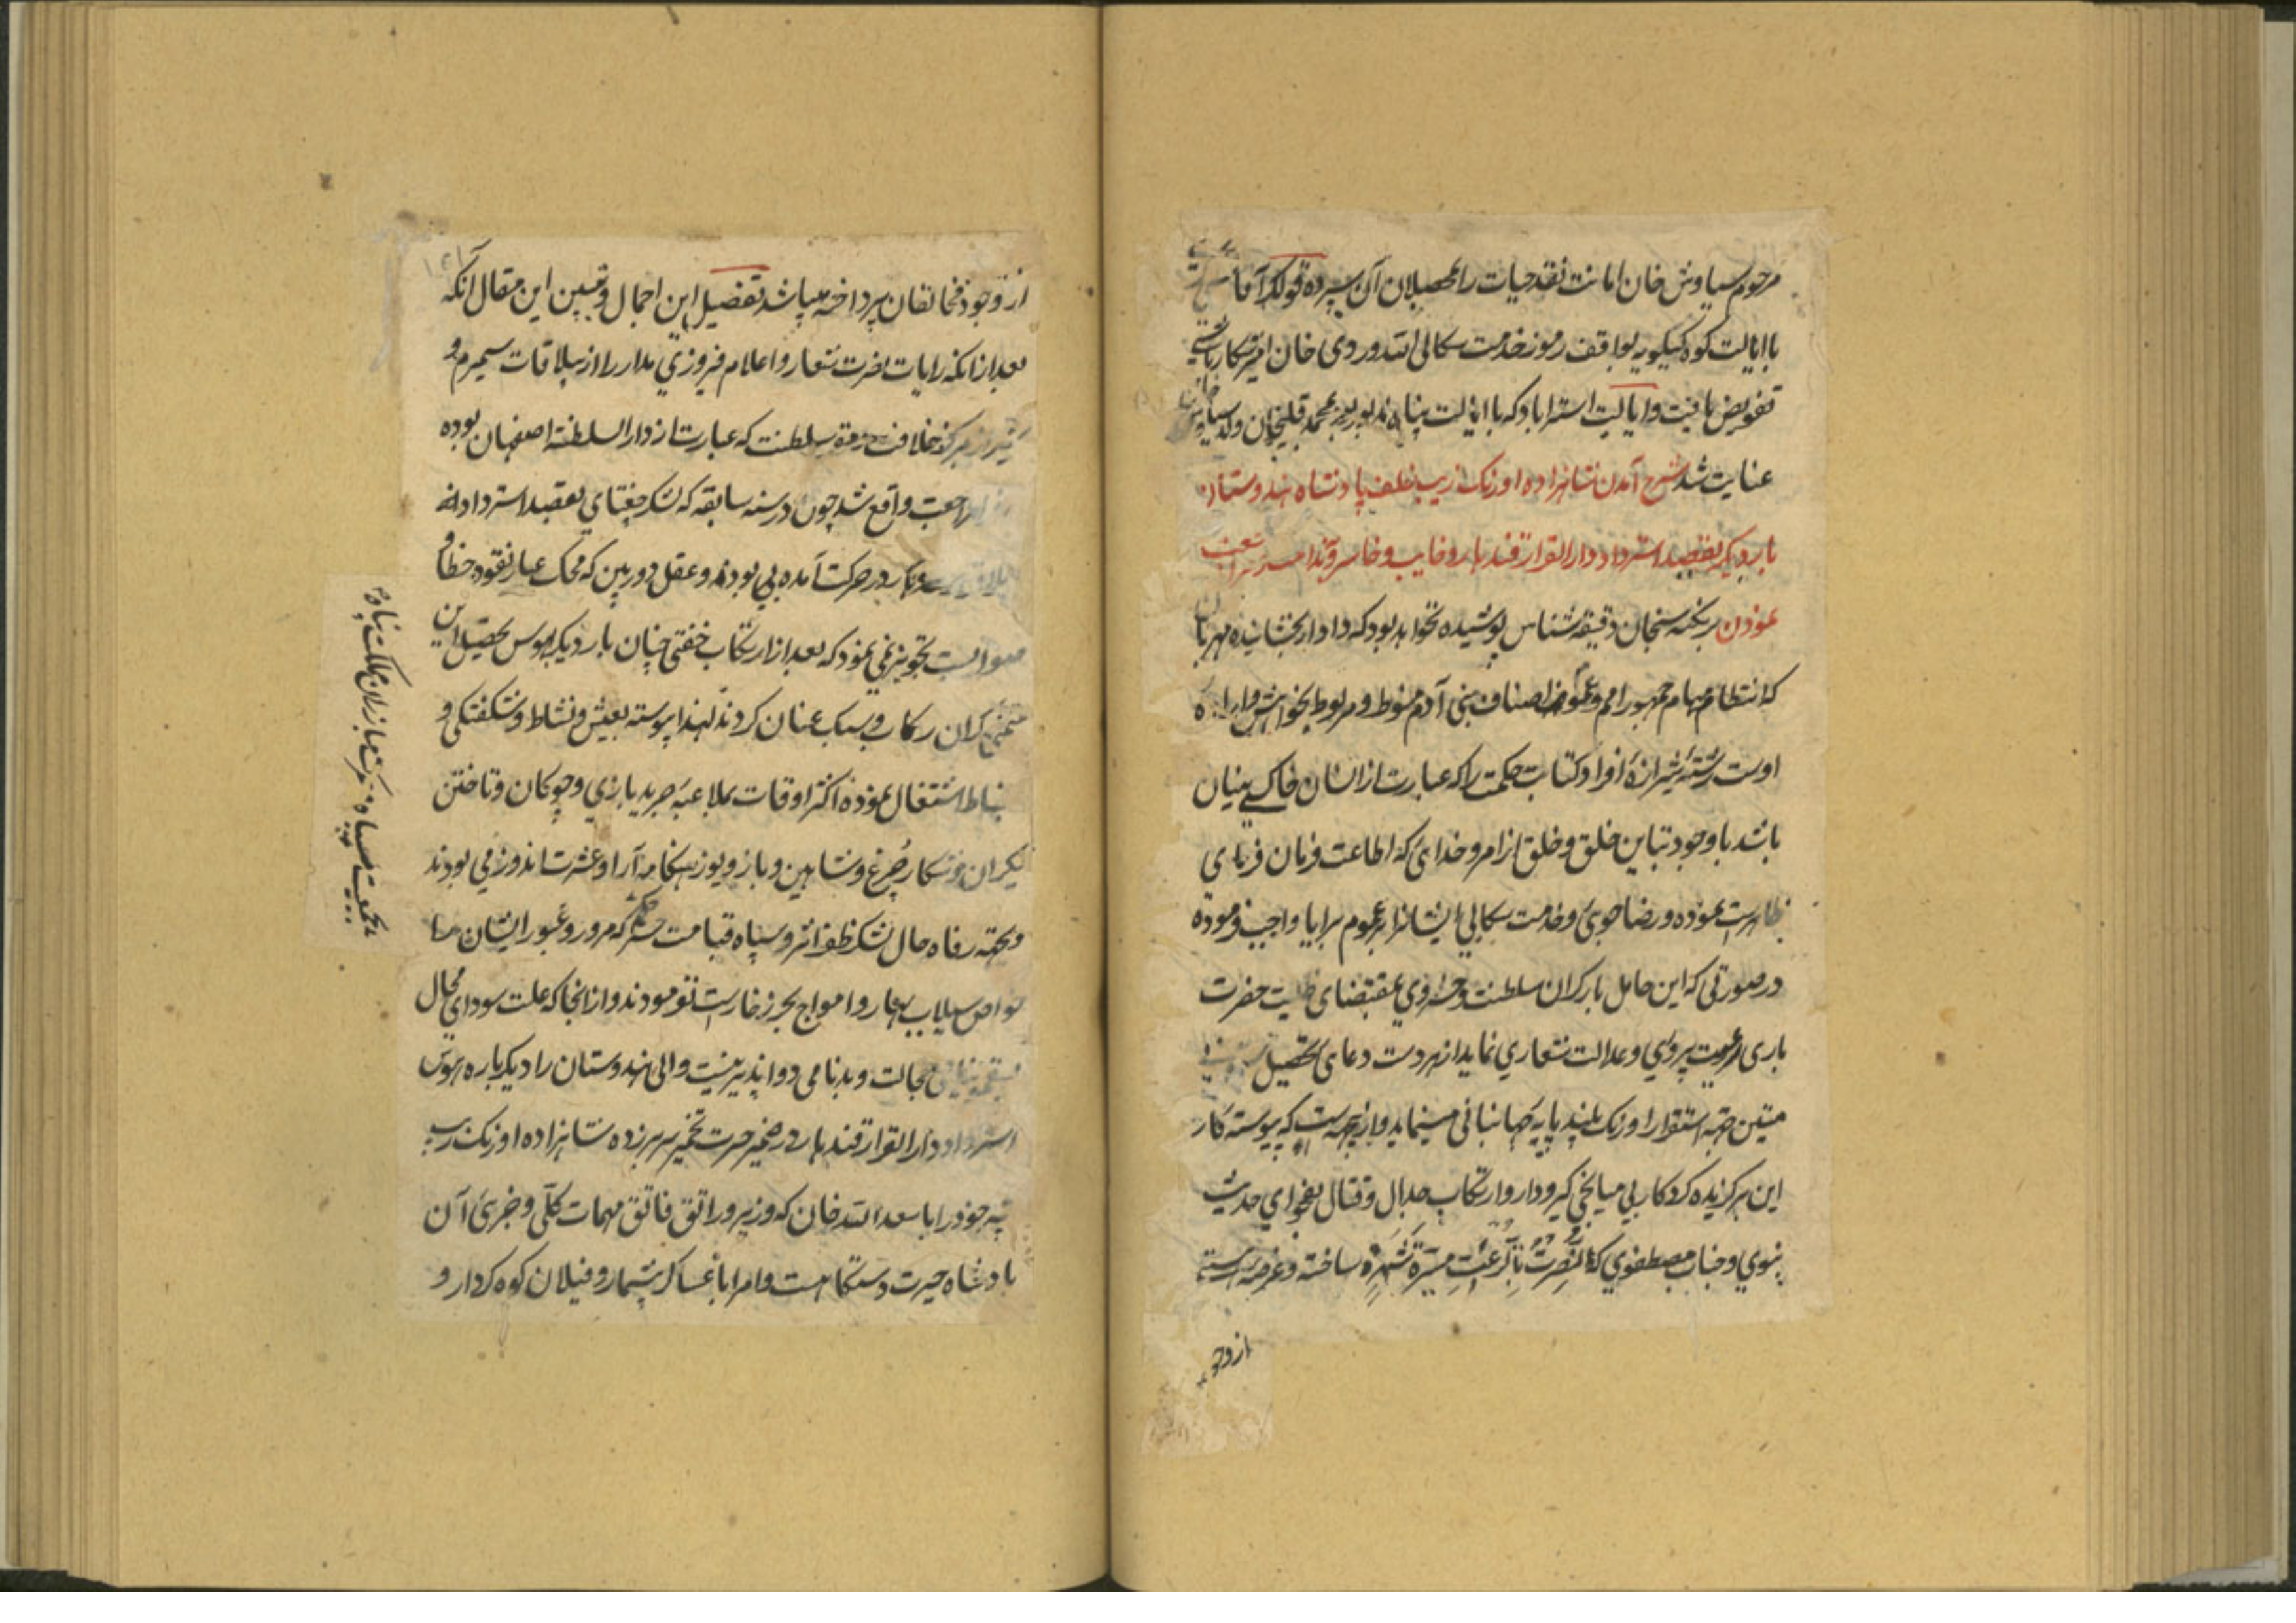 مرحوم سیاوش خان امانت نقد حیات را بمحصلان آن سپرده قوللر آقا
با ایالت کوه کیلویه بواقف رموز خدمت سکالی الله وردی خان امیر شکار باشی
تفویض یافت و ایالت استراباد که با ایالت پناه بود بمحمد قلیخان ولد سیاوش خان
عنایت شد شرح آمدن شاهزاده اورنک زیب خلف پادشاه هندوستان
بار دیگر بقصد استرداد دار القرار قندهار و خایب و خاسر
نمودن بر نکته سنجان دقیقه شناس پوشیده نخواهد بود که دادار بخشاینده مهربان
که انتظام مهام جمهور امم و اصناف بنی آدم منوط و مربوط بخواهش و اراده
اوست رشته شیرازه افراد کتاب حکمت را که عبارت از انسان خاکی بنیان
باشد با وجود تباین خلق و خلق از امر و خدائی که اطاعت فرمان فرمای
ظاهر است نموده و رضا جوئی و خدمت سکالی ایشانرا بر عموم برایا واجب فرموده
در صورتی که این حامل بار کران سلطنت و خسروی بمقتضای حضرت
باری رعیت پروری و عدالت شعاری نماید از هر دست دعای تحصیل
متین جهة استقرار اورنک بلند پایه جهانبانی مینماید و ازینجهتست که پیوسته کار
این برکزیده کردکار بی میانجی کیر و دار و ارتکاب جدال و قتال بفحوای حدیث
نبوی و جناب مصطفوی که نصرت بالرعب مسیرة شهر ساخته و عرصه
از وجو
از وجود مخالفان پرداخته میباشد تفصیل این اجمال و تبیین این مقال آنکه
بعد از آنکه رایات نصرت شعار و اعلام فیروزی مدار را از ییلاقات سیمرم و
مرکز خلافت و سلطنت که عبارت از دار السلطنه اصفهان بوده
مراجعت واقع شد چون در سنه سابقه که لشکر جغتای بقصد استرداد
در حرکت آمده بی بودند و عقل دوربین که محک عیار نقود خطا و
صوابست تجویز نمی نمود که بعد از ارتکاب خفتی چنان بار دیگر بهوس تحصیل این
کران رکاب و سبک عنان کردند لهذا پیوسته بعیش و نشاط و شکفتکی و
انبساط اشتغال نموده اکثر اوقات بملاعبه جرید بازی و چوکان و تاختن
یکران و شکار چرغ و شاهین و باز و یوز هنکامه آرا و عشرت اندوز می بودند
و بجهة رفاه حال لشکر ظفر اثر و سپاه قیامت حشر که مرور و عبور ایشان
خواص سیلاب بهار و امواج بحر زخار است توقف فرمودند و از آنجا که علت سودای محال
خجالت و بدنامی دوا پذیر نیست والی هندوستان را دیکر باره هوس
استرداد دار القرار قندهار در ضمیر حسرت تخمیر سر بر زده شاهزاده اورنک زیب
پسر خود را با سعد الله خان که وزیر و راتق فاتق مهمات کلی و جزئی آن
پادشاه حیرت دستکاهست و امرا با عساکر بیشمار و فیلان کوه کردار و